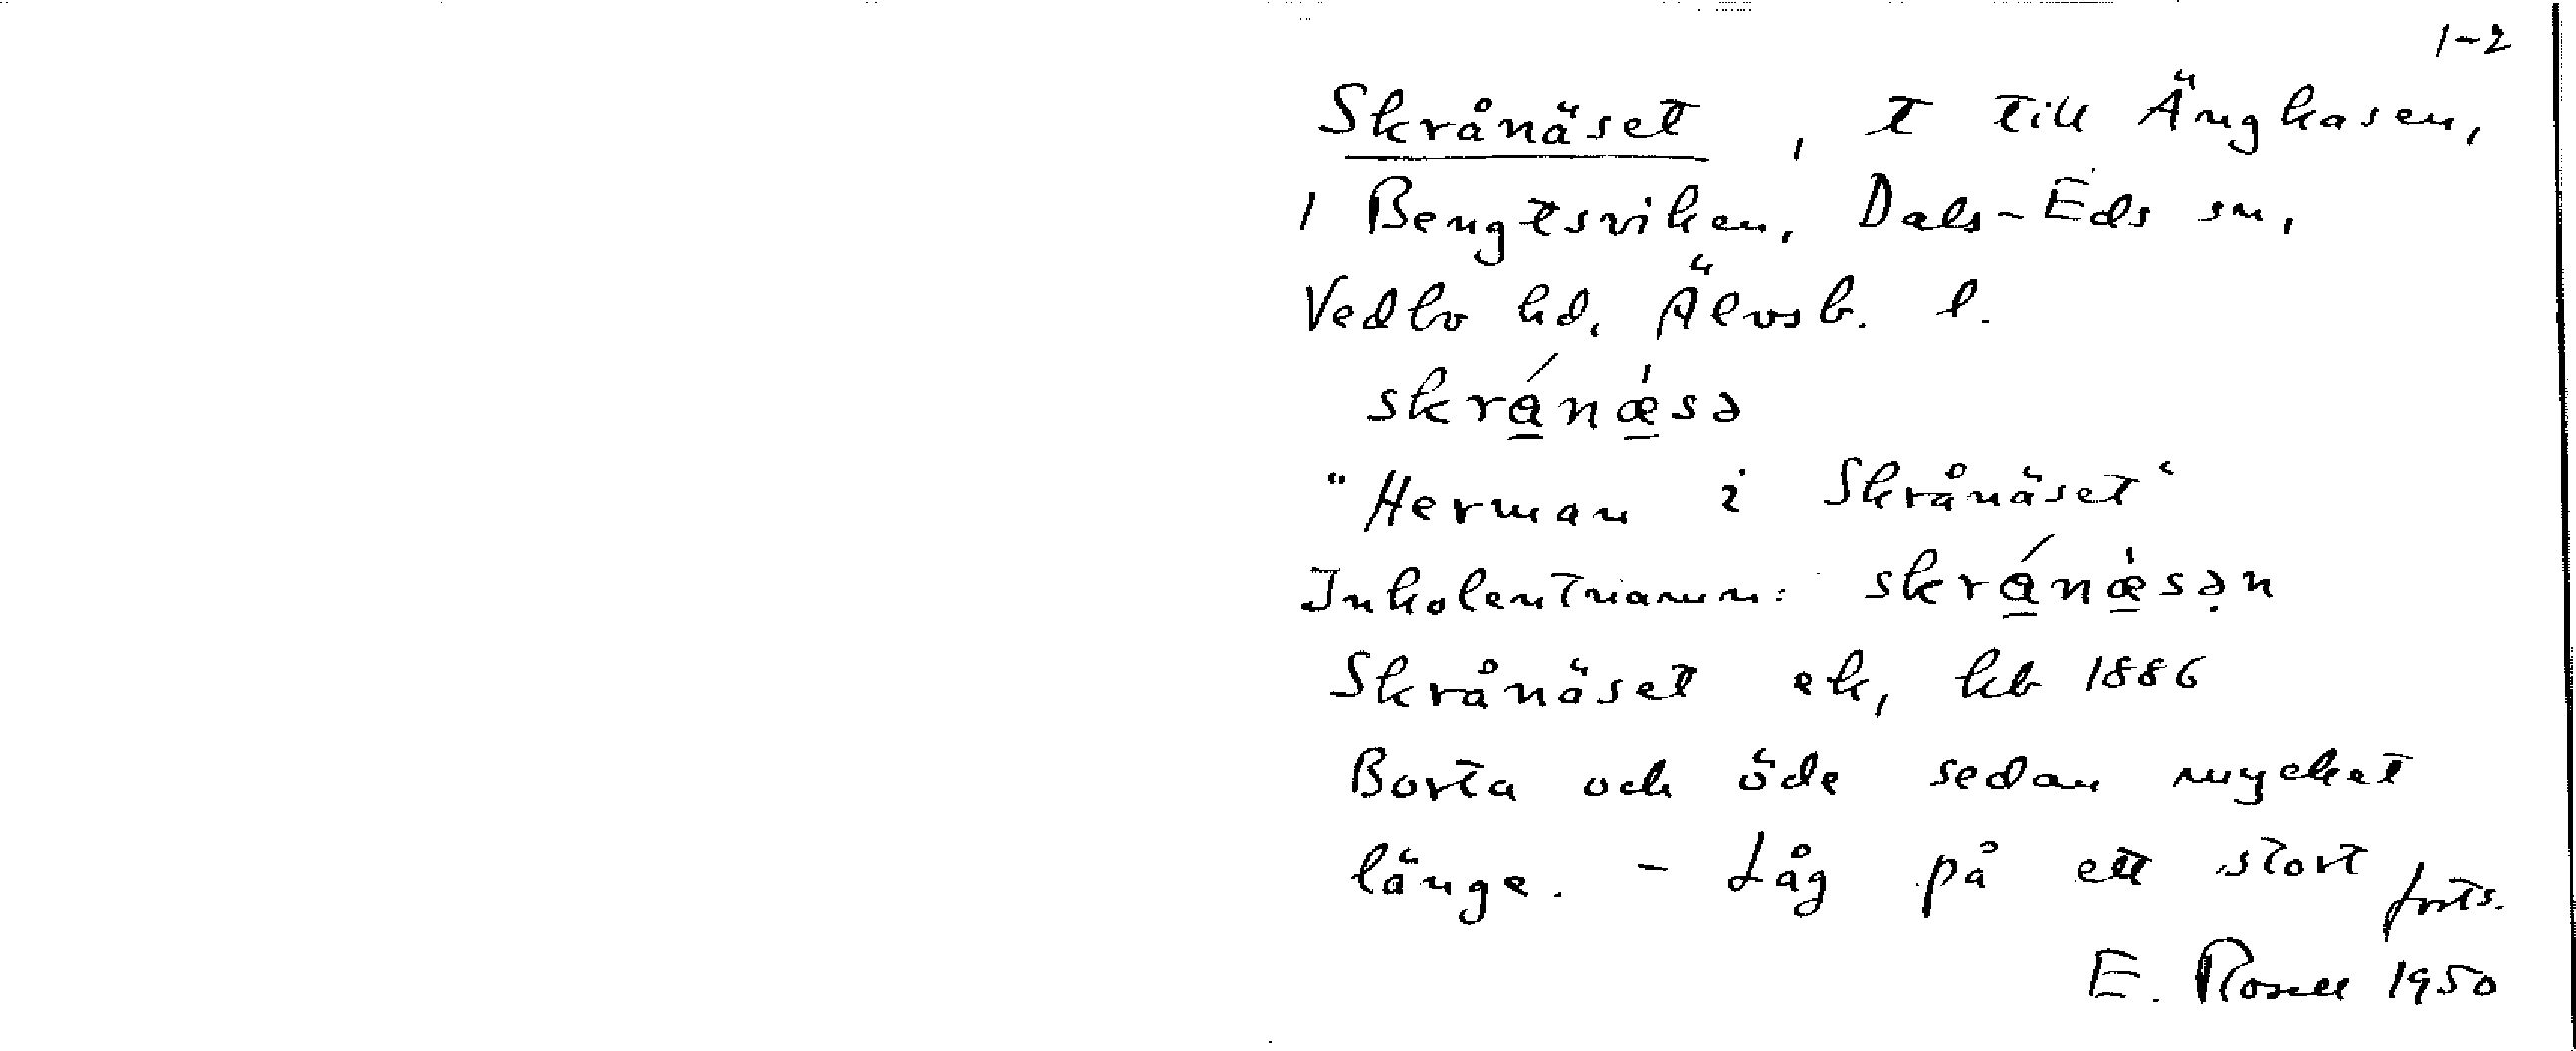 1-2
Skrånäset, t till Ängkasen,
1 Bengtsviken, Dals-Eds sn,
Vedbo hd, Älvsb. l.
skrá̱næ̱̍sə
"Herman i Skrånäset"
Inkolentnamn: skrá̱næ̱̍sə̣n
Skrånäset ek, kb 1886
Borta och öde sedan mycket
länge. - Låg på ett stort forts.
E. Rosell 1950